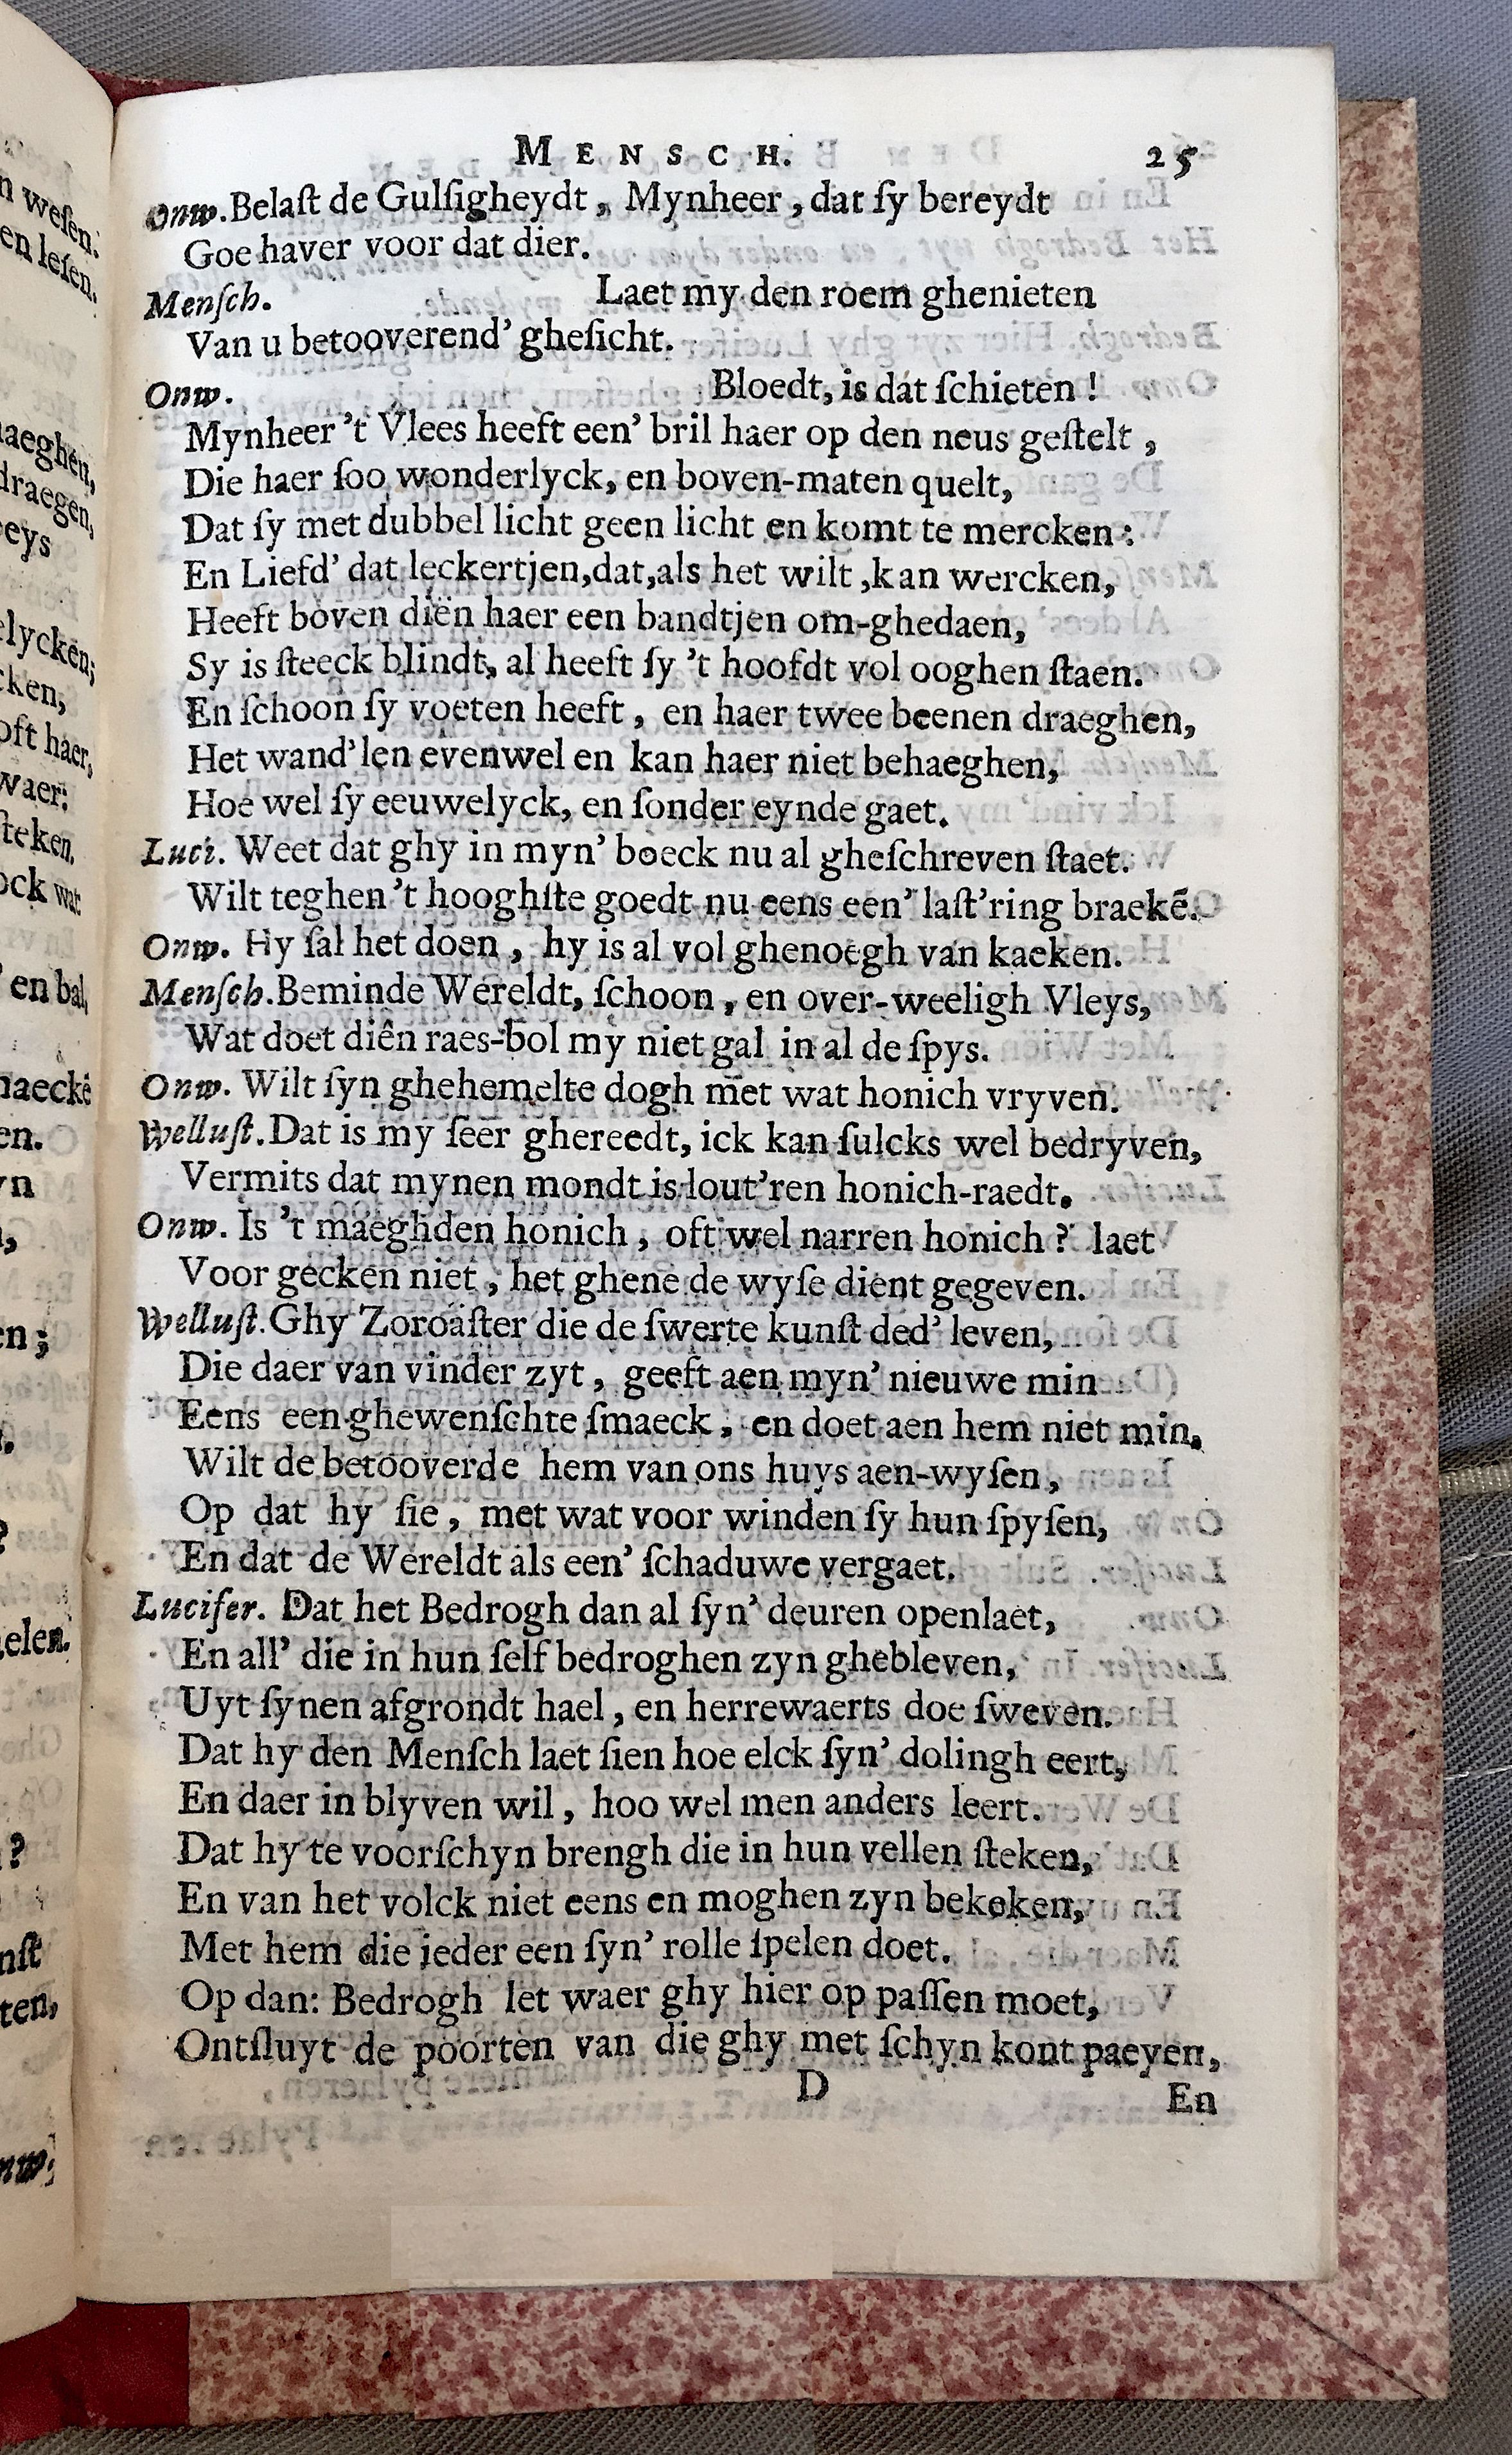 MENSCH. 25
Onw. Belaſt de Gulſigheydt, Mynheer, dat ſy bereydt
Goe haver voor dat dier.
Menſch. Laet my den roem ghenieten
Van u betooverend' gheſicht.
Onw. Bloedt, is dat ſchieten!
Mynheer 't Vlees heeft een' bril haer op den neus geſtelt,
Die haer ſoo wonderlyck, en boven-maten quelt,
Dat ſy met dubbel licht geen licht en komt te mercken:
En Liefd' dat leckertjen, dat, als het wilt, kan wercken,
Heeft boven diën haer een bandtjen om-ghedaen,
Sy is ſteeck blindt, al heeft ſy 't hoofdt vol ooghen ſtaen.
En ſchoon ſy voeten heeft, en haer twee beenen draeghen,
Het wand'len evenwel en kan haer niet behaeghen,
Hoe wel ſy eeuwelyck, en ſonder eynde gaet.
Luci. Weet dat ghy in myn' boeck nu al gheſchreven ſtaet.
Wilt teghen 't hooghſte goedt nu eens een' laſt'ring braekẽ.
Onw. Hy ſal het doen, hy is al vol ghenoegh van kaeken.
Menſch. Beminde Wereldt, ſchoon, en over-weeligh Vleys,
Wat doet diên raes-bol my niet gal in al de ſpys.
Onw. Wilt ſyn ghehemelte dogh met wat honich vryven.
Welluſt. Dat is my ſeer ghereedt, ick kan ſulcks wel bedryven,
Vermits dat mynen mondt is lout'ren honich-raedt.
Onw. Is 't maeghden honich, oft wel narren honich? laet
Voor gecken niet, het ghene de wyſe dient gegeven.
Welluſt. Ghy Zoroäſter die de ſwerte kunſt ded' leven,
Die daer van vinder zyt, geeft aen myn' nieuwe min
Eens een ghewenſchte ſmaeck, en doet aen hem niet min.
Wilt de betooverde hem van ons huys aen-wyſen,
Op dat hy ſie, met wat voor winden ſy hun ſpyſen,
En dat de Wereldt als een' ſchaduwe vergaet.
Lucifer. Dat het Bedrogh dan al ſyn' deuren openlaet,
En all' die in hun ſelf bedroghen zyn ghebleven,
Uyt ſynen afgrondt hael, en herrewaerts doe ſweven.
Dat hy den Menſch laet ſien hoe elck ſyn' dolingh eert,
En daer in blyven wil, hoo wel men anders leert.
Dat hy te voorſchyn brengh die in hun vellen ſteken,
En van het volck niet eens en moghen zyn bekeken,
Met hem die ieder een ſyn' rolle ſpelen doet.
Op dan: Bedrogh let waer ghy hier op paſſen moet,
Ontſluyt de poorten van die ghy met ſchyn kont paeyen,
D En